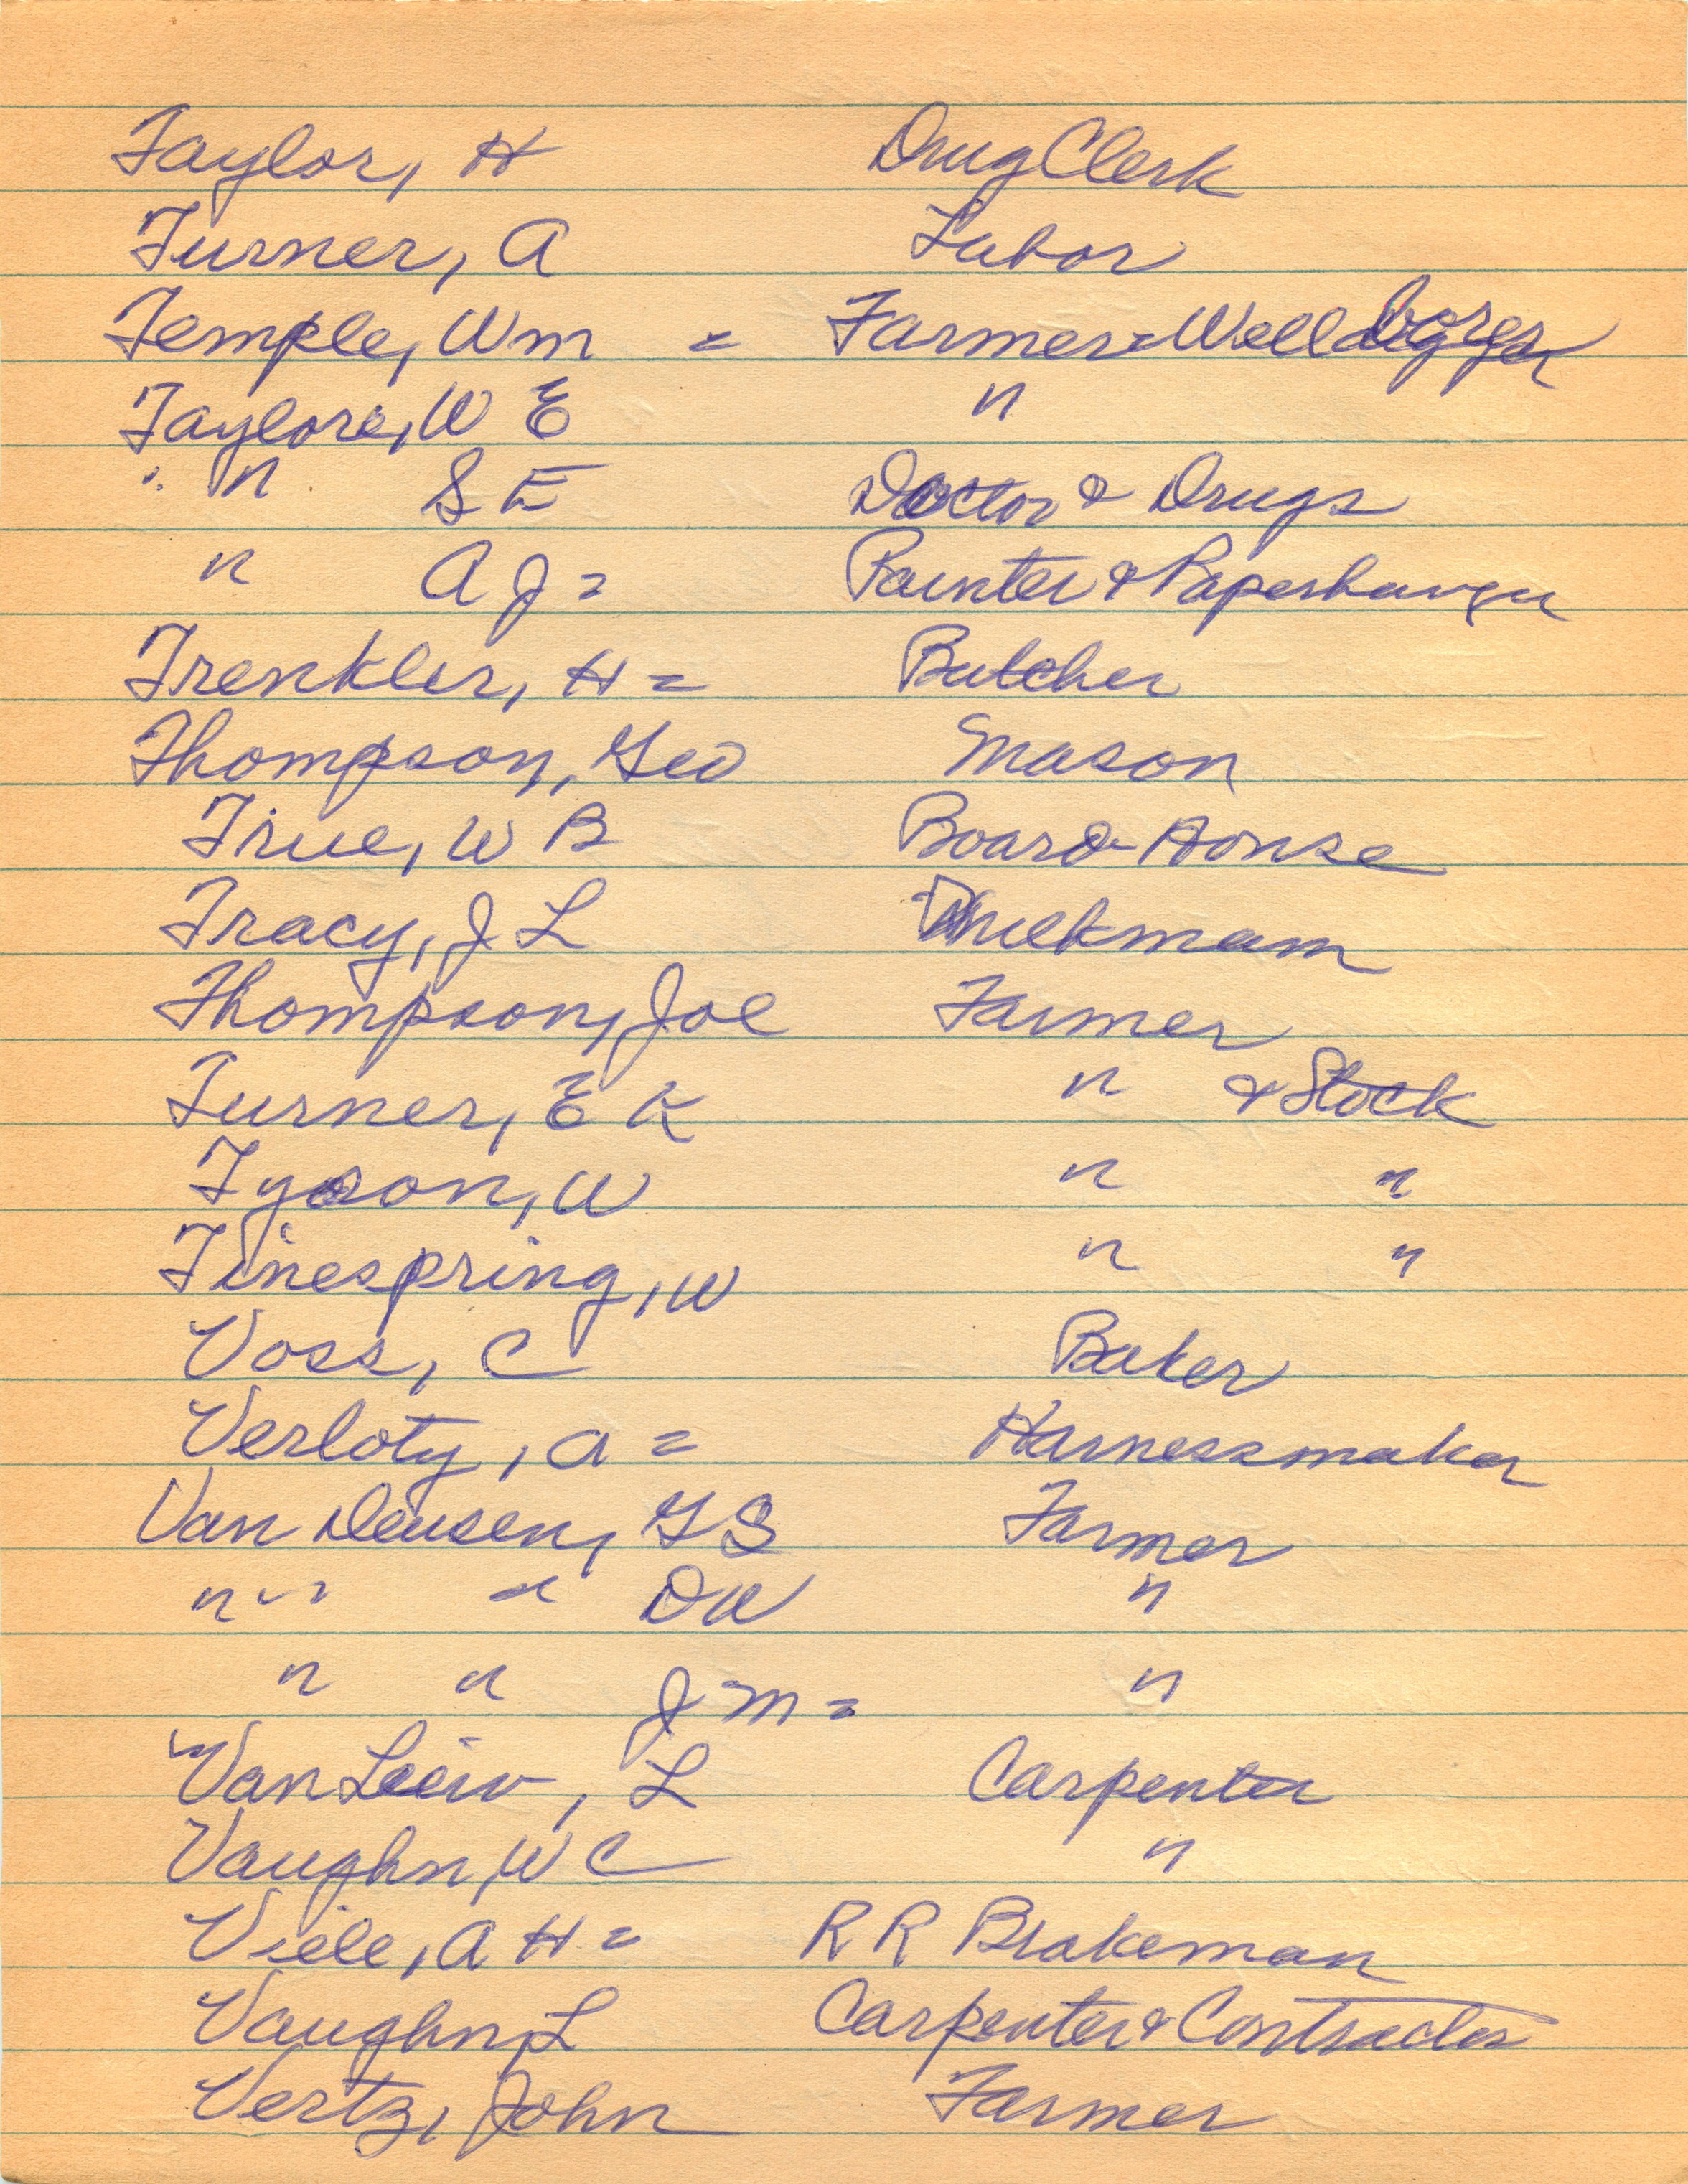 Taylor, H Drug Clerk
Turner, A Labor
Temple, Wm = Farmer = Well
Taylore, W E "
" S E Doctor & Drugs
" A J = Painter & Paperhanger
Trenkler, H = Butcher
Thompson, Geo Mason
True, W B Board House
Tracy, J L Milkmam
Thompson, Joe Farmer
Turner, E K " & Stock
Tyson, W " "
Tinespring, W " "
Voss, C Baker
Verloty, A = Harnessmaker
Van Deusen, G S Farmer
" " " D W "
" " J M = "
Van , L Carpenter
Vaughn, W C "
Viele, A H = R R Brakeman
Vaughn, L Carpenter & Contractor
Vertz, John Farmer